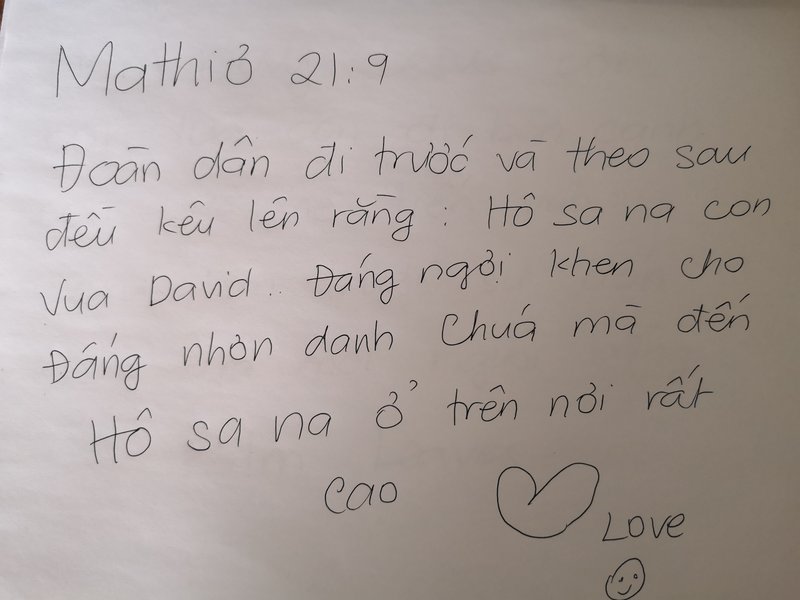 Mathiơ 21:9
Đoàn dân đi trước và theo sau
đều kêu lên rằng : Hô sa na con
Vua David.. Đáng ngợi khen cho
Đấng nhơn danh Chúa mà đến
Hô sa na ở trên nơi rất
cao
LOVE